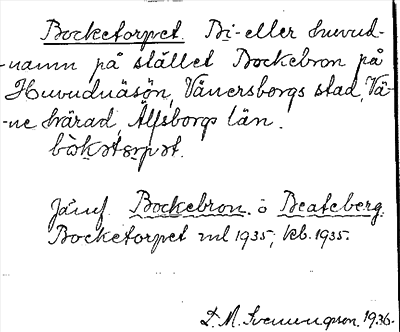 Bocketorpet. Bi- eller huvud-
-namn på stället Bockebron på
Huvudnäsön, Vänersborgs stad, Vä-
-ne härad, Älfsborgs län.
bòkətɔrpət.
Jämf. Bockebron. o Beateberg.
Bocketorpet ml 1935; kb. 1935.
D. M. Svenungsson. 1936.